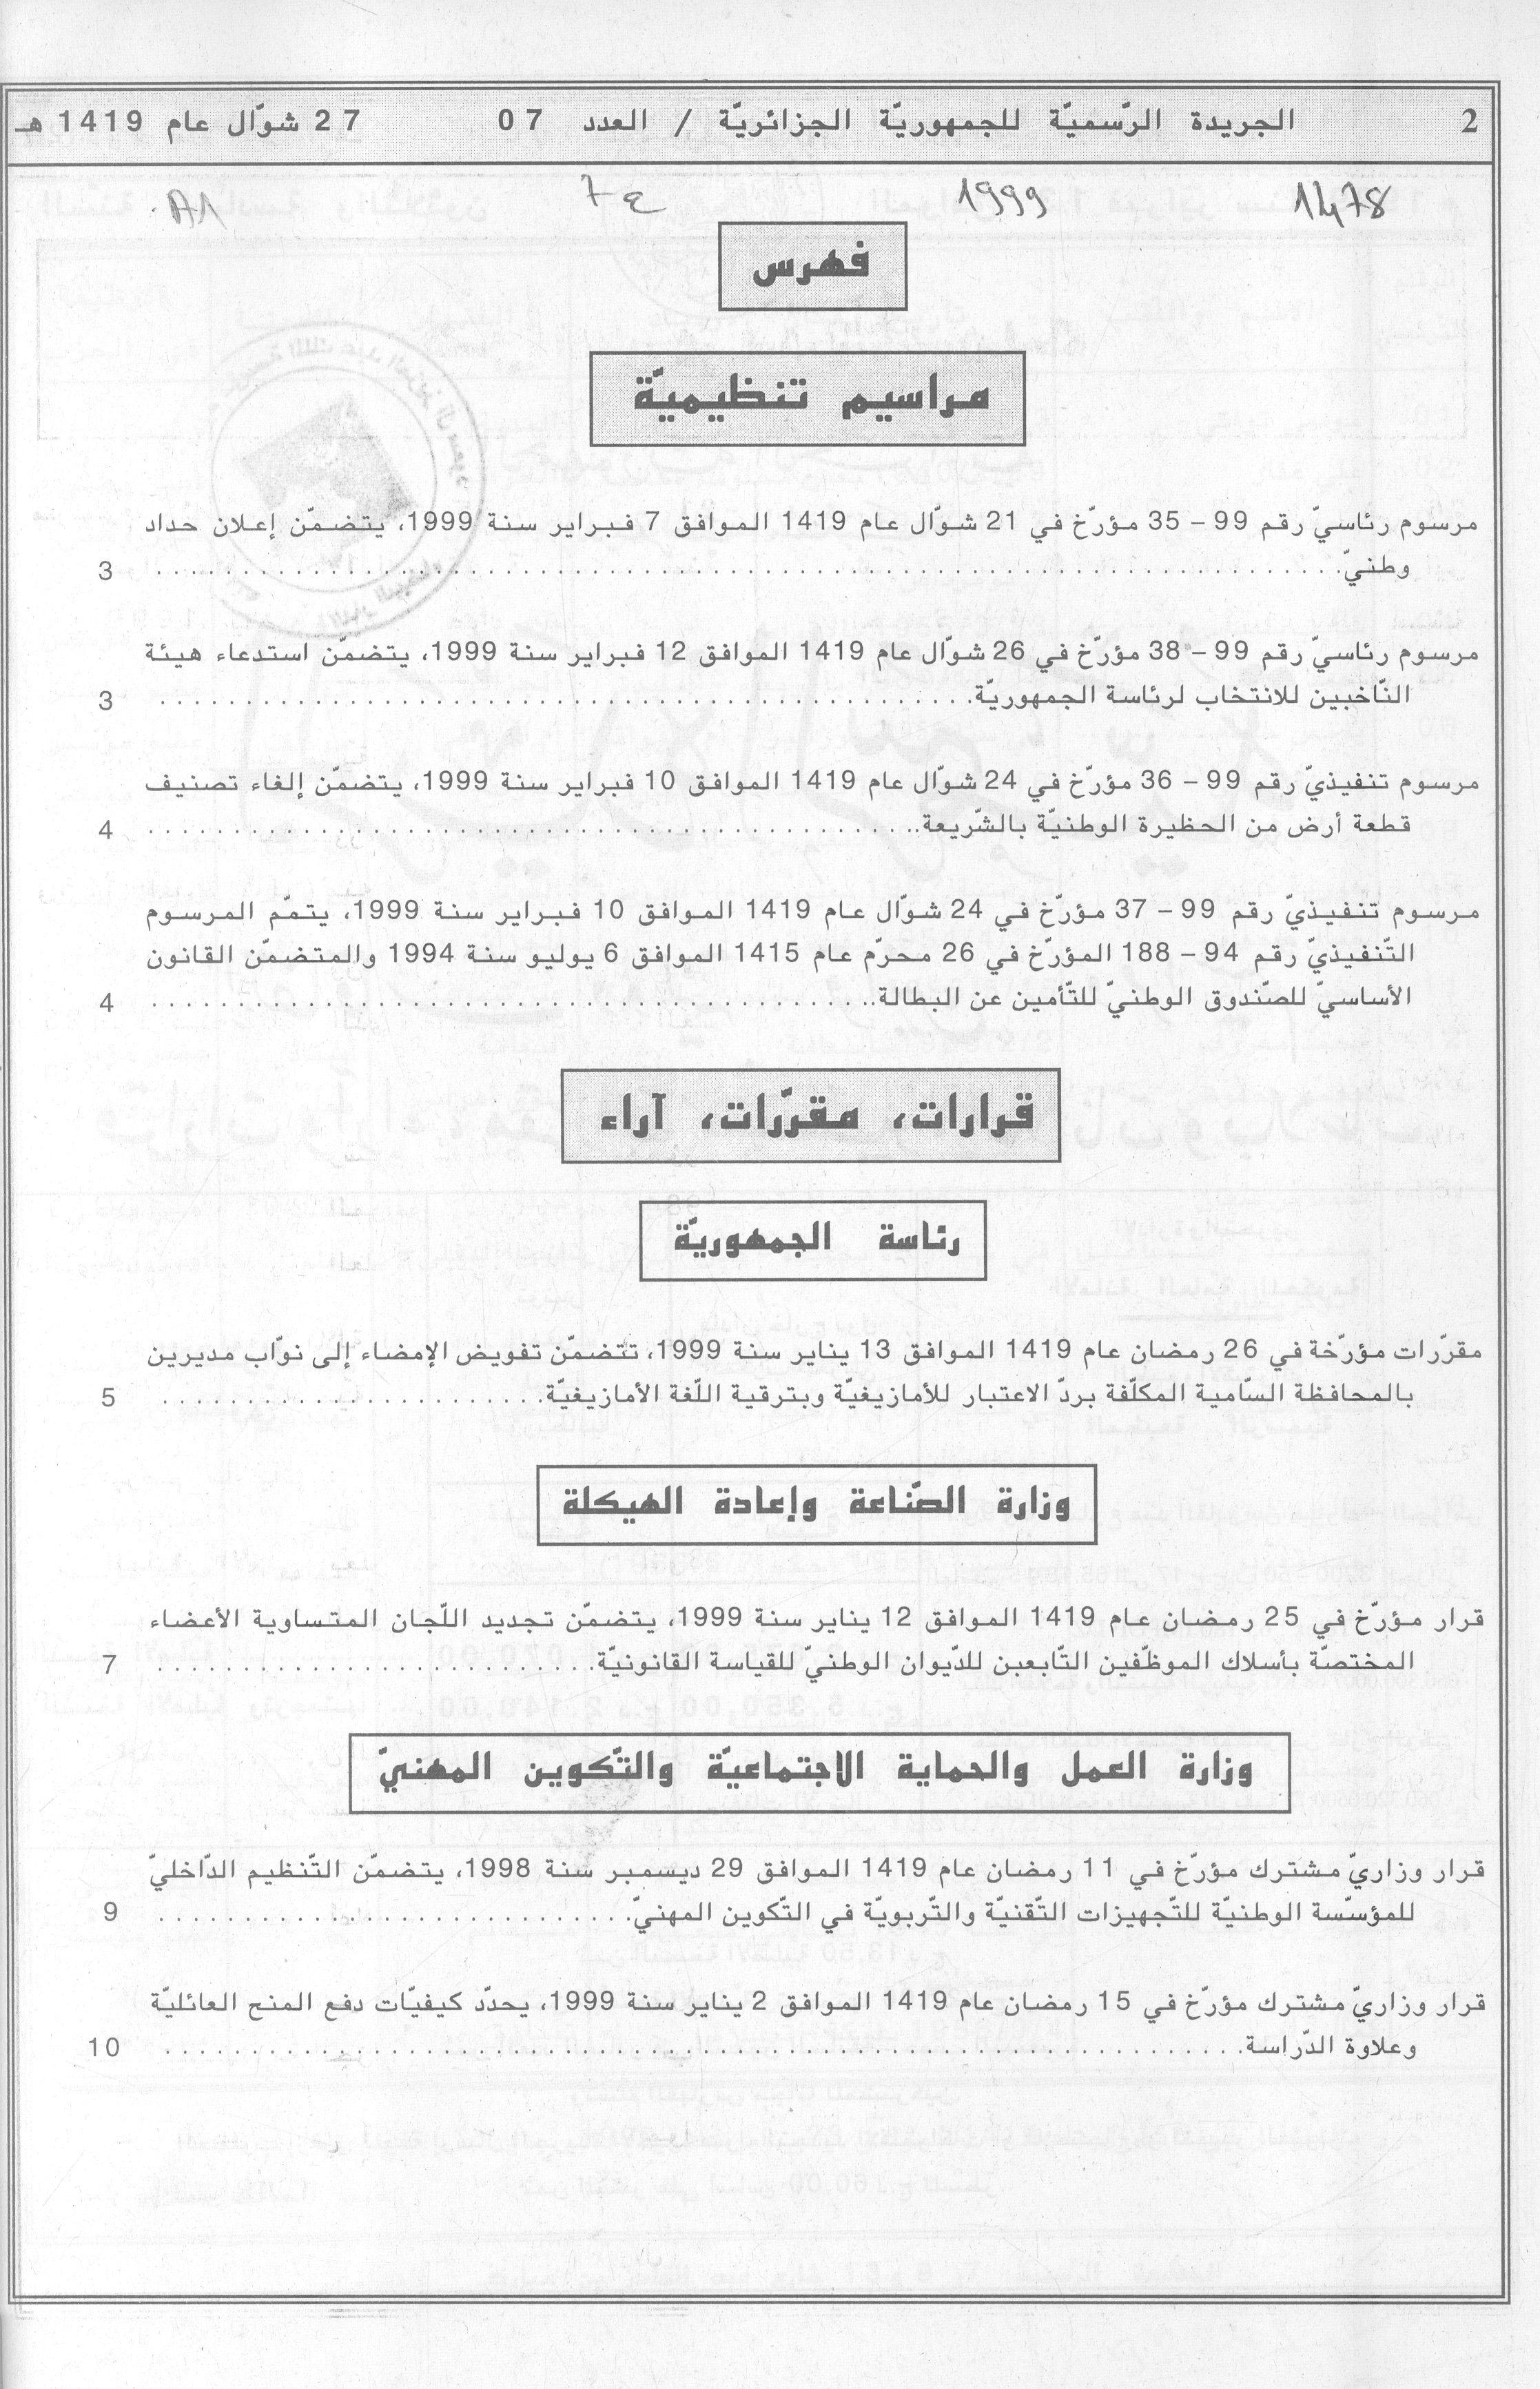 2 الجريدة الرّسميّة للجمهوريّة الجزائريّة / العدد 07 27 شوّال عام 1419 هـ
1478 1999 ع 7 A1
فهرس
مراسيم تنظيميّة
مرسوم رئاسيّ رقم 99 – 35 مؤرّخ في 21 شوّال عام 1419 الموافق 7 فبراير سنة 1999، يتضمّن إعلان حداد
وطنيّ. 3
مرسوم رئاسيّ رقم 99 – 38 مؤرّخ في 26 شوّال عام 1419 الموافق 12 فبراير سنة 1999، يتضمّن استدعاء هيئة
النّاخبين للانتخاب لرئاسة الجمهوريّة. 3
مرسوم تنفيذيّ رقم 99 – 36 مؤرّخ في 24 شوّال عام 1419 الموافق 10 فبراير سنة 1999، يتضمّن إلغاء تصنيف
قطعة أرض من الحظيرة الوطنيّة بالشّريعة.. 4
مرسوم تنفيذيّ رقم 99 – 37 مؤرّخ في 24 شوّال عام 1419 الموافق 10 فبراير سنة 1999، يتمّم المرسوم
التّنفيذيّ رقم 94 – 188 المؤرّخ في 26 محرّم عام 1415 الموافق 6 يوليو سنة 1994 والمتضمّن القانون
الأساسيّ للصّندوق الوطنيّ للتّأمين عن البطالة.. 4
قرارات، مقرّرات، آراء
رئاسة الجمهوريّة
مقرّرات مؤرّخة في 26 رمضان عام 1419 الموافق 13 يناير سنة 1999، تتضمّن تفويض الإمضاء إلى نوّاب مديرين
بالمحافظة السّامية المكلّفة بردّ الاعتبار للأمازيغيّة وبترقية اللّغة الأمازيغيّة. 5
وزارة الصّناعة وإعادة الهيكلة
قرار مؤرّخ في 25 رمضان عام 1419 الموافق 12 يناير سنة 1999، يتضمّن تجديد اللّجان المتساوية الأعضاء
المختصّة بأسلاك الموظّفين التّابعبن للدّيوان الوطنيّ للقياسة القانونيّة. 7
وزارة العمل والحماية الاجتماعيّة والتّكوين المهنيّ
قرار وزاريّ مشترك مؤرّخ في 11 رمضان عام 1419 الموافق 29 ديسمبر سنة 1998، يتضمّن التّنظيم الدّاخليّ
للمؤسّسة الوطنيّة للتّجهيزات التّقنيّة والتّربويّة في التّكوين المهنيّ. 9
قرار وزاريّ مشترك مؤرّخ في 15 رمضان عام 1419 الموافق 2 يناير سنة 1999، يحدّد كيفيّات دفع المنح العائليّة
وعلاوة الدّراسة. 10